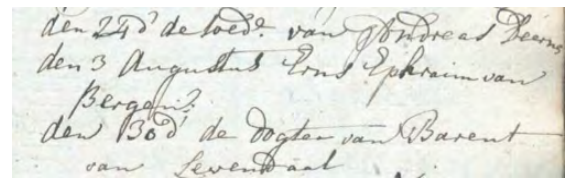 den 24d' de wede. van Andreas Deerns
den 3 Augustus Erns Ephraim van
Bergen?
den 30d' de dogter van Barent
van Levendaal